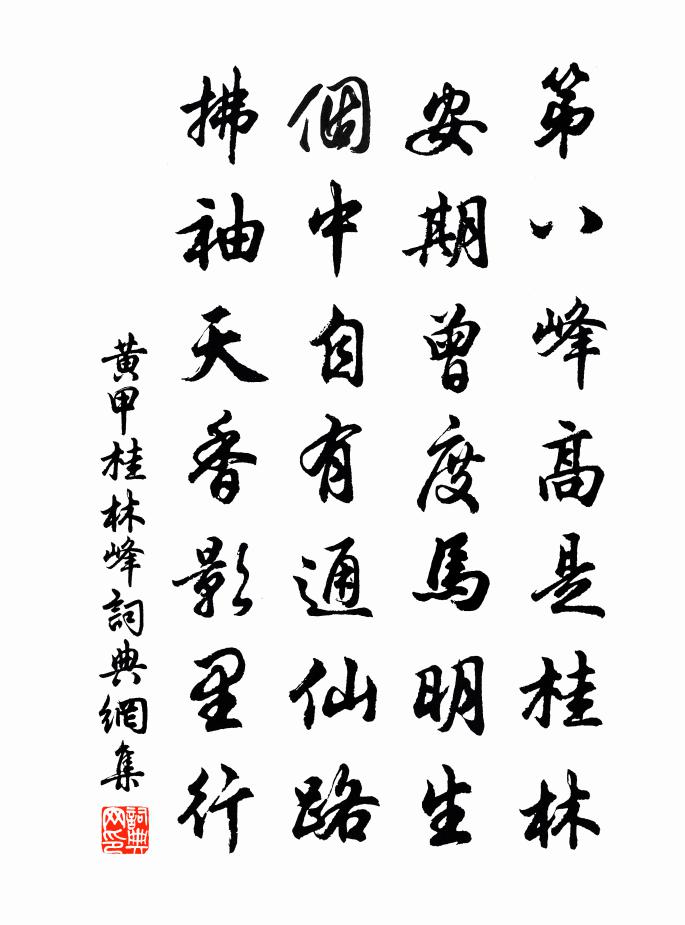 第八峰高是桂林
安期曾度馬明生
個中自有通仙路
拂袖天香影里行
黄甲桂林峰詞典網集
詞典网印